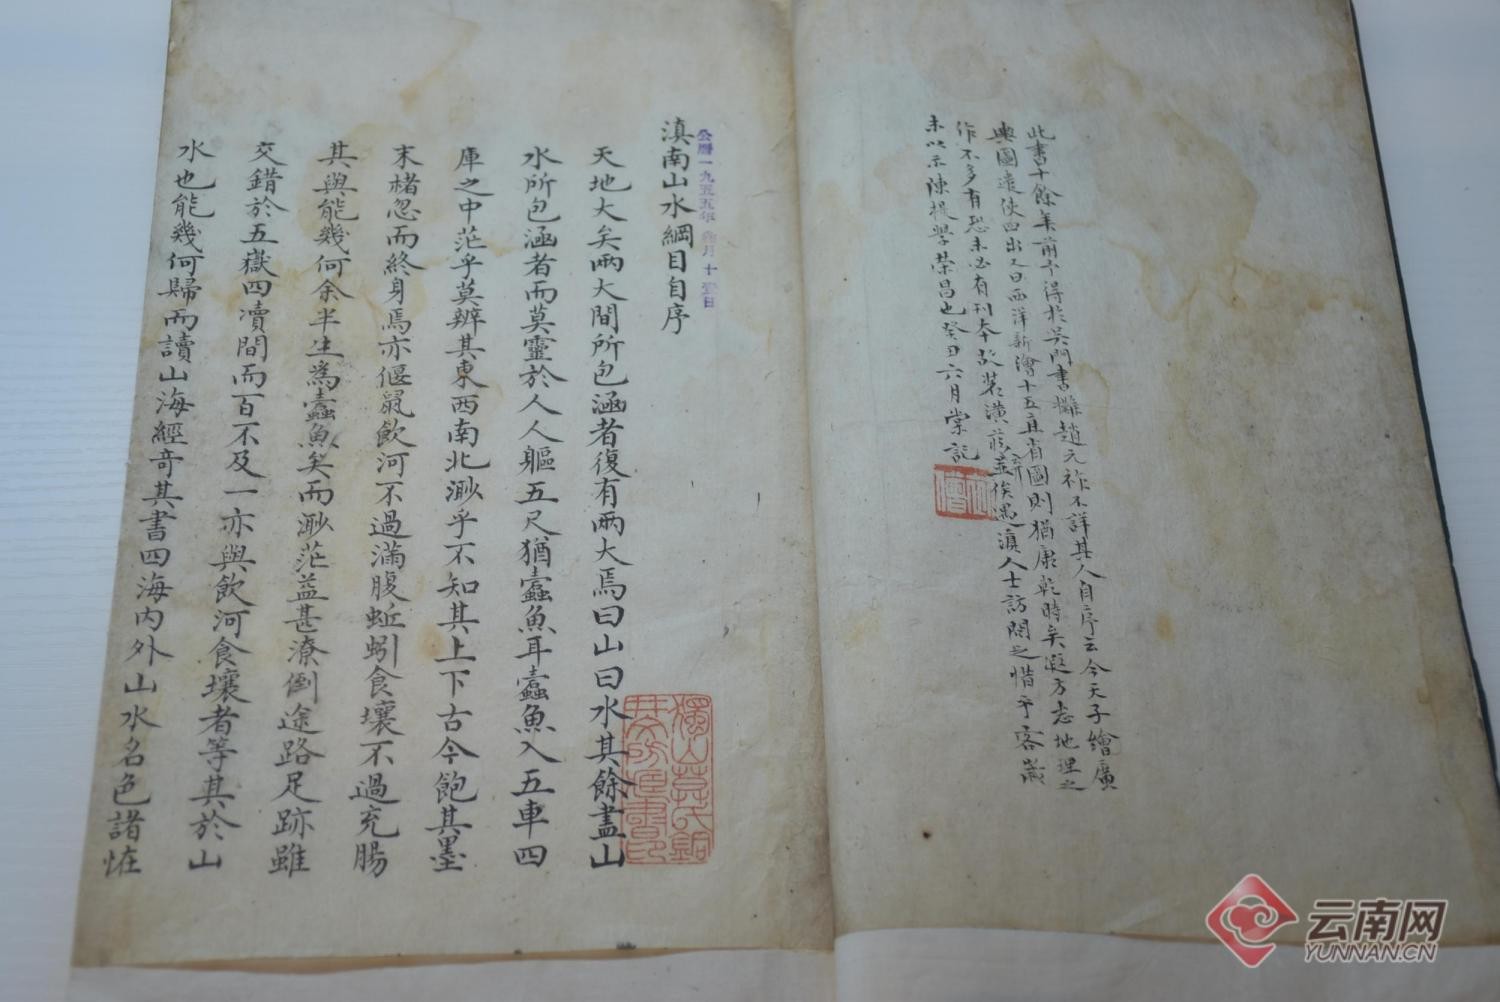 此書十餘年前予得於吳門書攤趙元祚不詳其人自序云今天子繪廣
輿圖遠使四出又曰西洋新繪十五直省圖則猶康乾時矣滇方志地理之
作不多有恐未必有刊本故裝潢藏弆俟遇滇人士訪問之惜乎客歲
未以示陳提學榮昌也癸丑六月棠記
滇南山水綱目自序
公曆一九五五年 月十 日
天地大矣兩大間所包涵者復有兩大焉曰山曰水其餘盡山
水所包涵者而莫靈於人人軀五尺猶蠹魚耳蠹魚入五車四
庫之中茫乎莫辨其東西南北渺乎不知其上下古今飽其墨
末楮忽而終身焉亦偃鼠飲河不過滿腹蚯蚓食壤不過充腸
其與能幾何余半生為蠹魚矣而渺茫益甚潦倒途路足跡雖
交錯於五嶽四瀆間而百不及一亦與飲河食壤者等其於山
水也能幾何歸而讀山海經奇其書四海内外山水名色諸恠
獨山莫氏銅
井文房藏書印
云南网
YUNNAN.CN